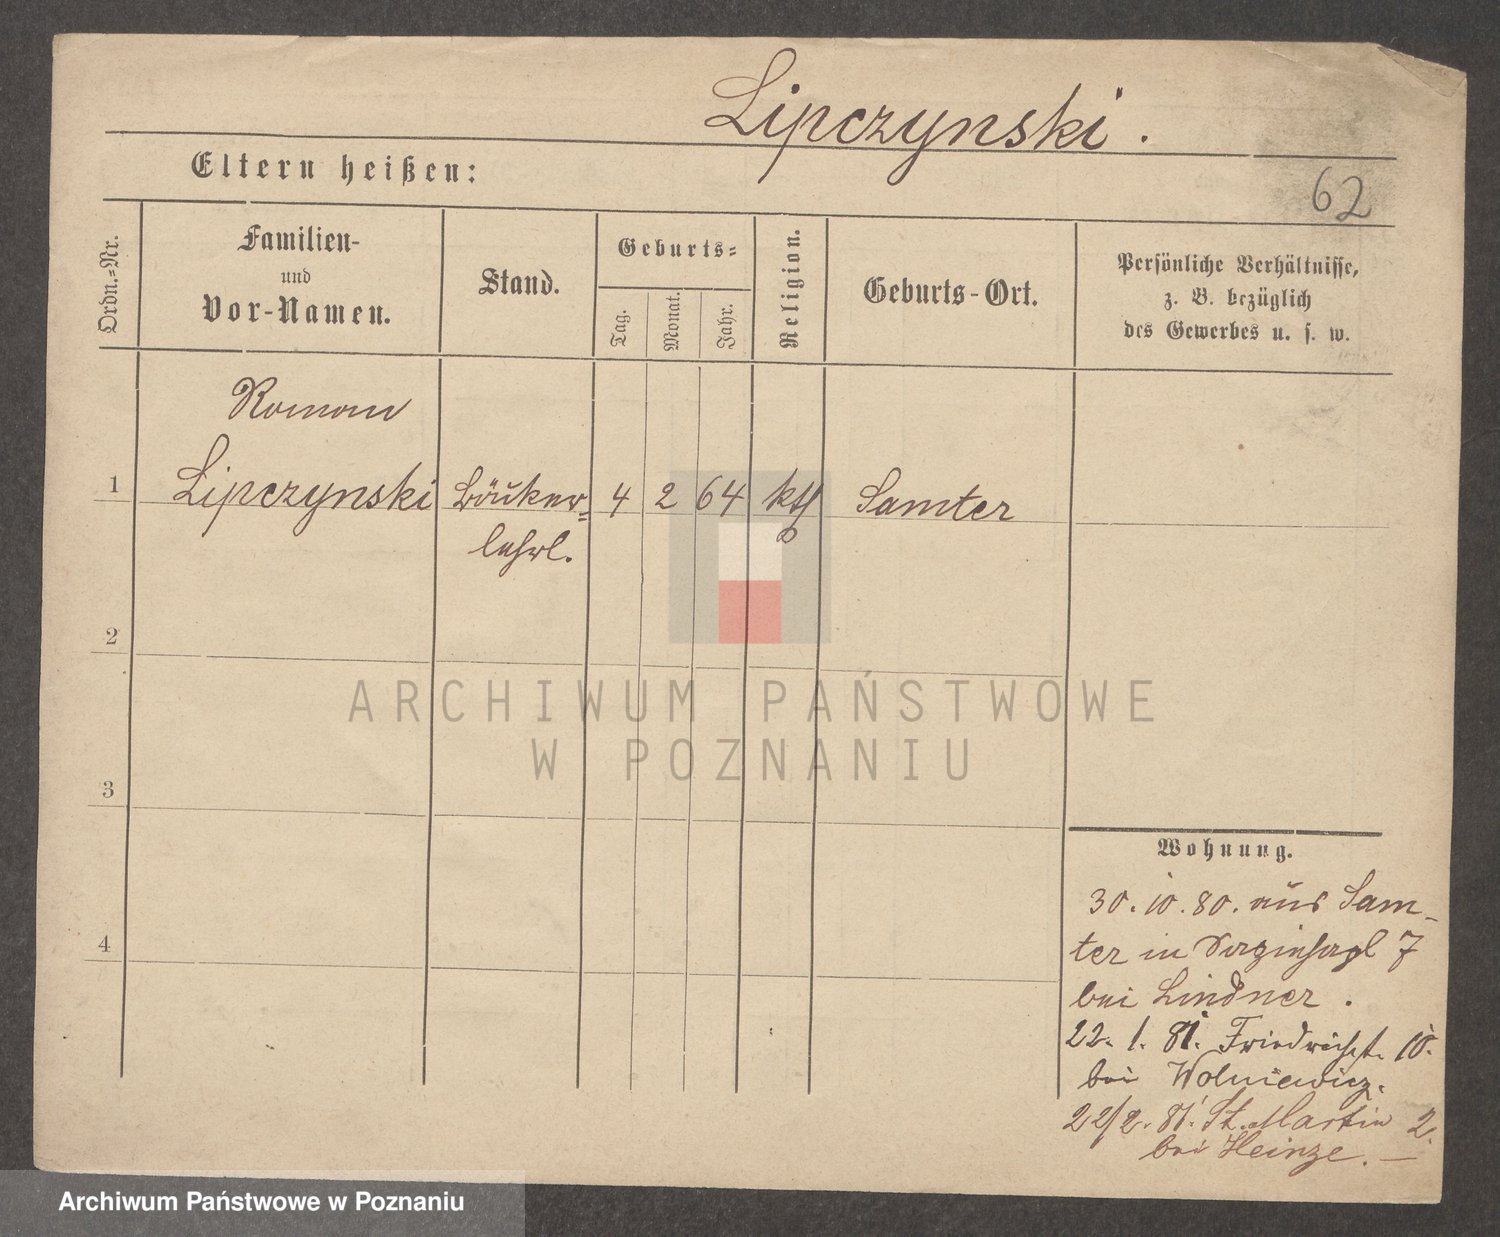 Lipczynski.
Eltern heißen:
62
Ordn.=Nr.
Familien-
und
Vor-Namen.
Stand.
Geburts=
Tag.
Monat.
Jahr.
Religion.
Geburts-Ort.
Persönliche Verhältnisse,
z. B. bezüglich
des Gewerbes u. s. w.
Roman
1 Lipczynski 4 2 64 kth Samter
lehrl.
2
3
4
Wohnung.
30. 10. 80. aus Sam-
ter in 7
bei Lindner.
22. 1. 81. Friedrichst. 10.
bei Wolniewicz.
22/2. 81. St. Martin 2.
bei Heinze. —
ARCHIWUM PAŃSTWOWE
W POZNANIU
Archiwum Państwowe w Poznaniu